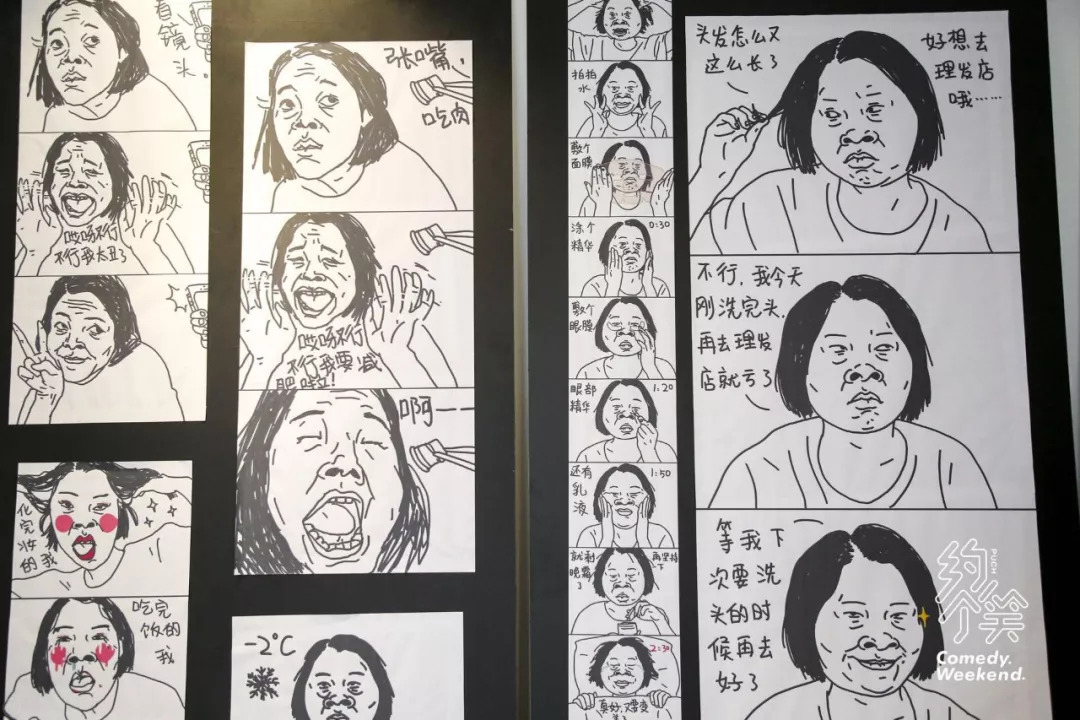 看
镜
头!
哎呀不行
不行我太丑了
化
完
妆
的我
吃完
饭的
我
张嘴,
吃肉
哎呀不行
不行我要减
肥啦!
啊——
-2°C
拍拍
水
敷个
面膜
涂个
精华
0:30
敷个
眼膜
眼部
精华
1:20
还有
乳
液
1:50
就剩
晚霜
了
再坚持
下
2:30
真好,又要变
头发怎么又
这么长了
好想去
理发店
哦……
不行,我今天
刚洗完头,
再去理发
店就亏了
等我下
次要洗
头的时
候再去
好了
约个笑
Comedy.
Weekend.